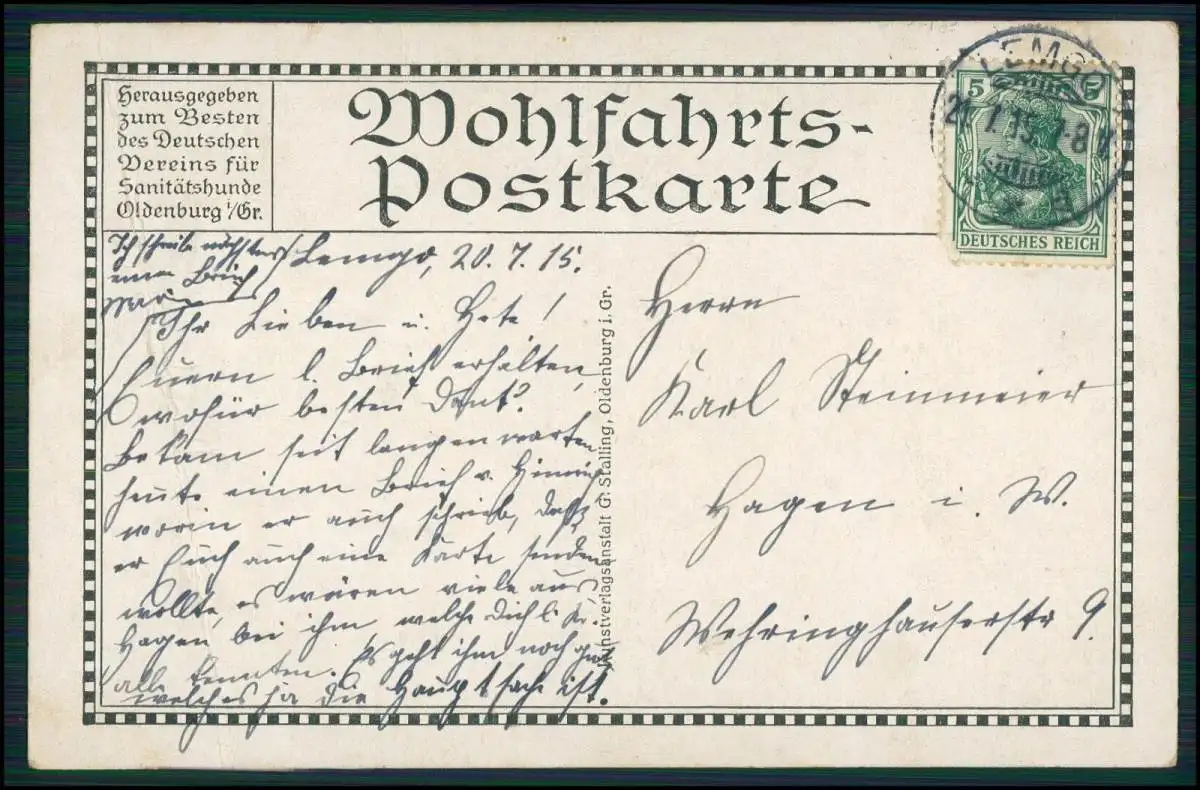 Herausgegeben
zum Besten
des Deutschen
Vereins für
Sanitätshunde
Oldenburg i/Gr.
Wohlfahrts-
Postkarte
LEMGO
21.7.15. 7-8
5 5
DEUTSCHES REICH
Ich schreibe nächstens
einen Brief
Lemgo, 20.7.15.
Ihr Lieben u. Hete!
Euern l. Brief erhalten,
wofür besten Dank.
Bekam seit langen warten
heute einen Brief v. Hinrich
worin er auch schrieb, daß
er Euch auch eine Karte senden
wollte, es wären viele aus
Hagen bei ihm welche Dich l.
alle kennten. Es geht ihm noch gut
welches ja die Hauptsache ist.
Kunstverlagsanstalt G. Stalling, Oldenburg i. Gr.
Herrn
Karl Steinmeier
Hagen i. W.
Wehringhauserstr 9.